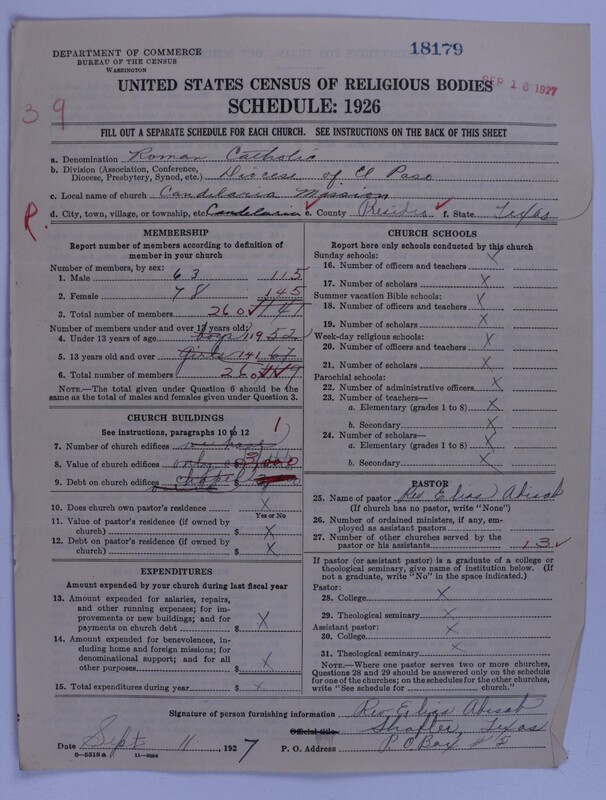 DEPARTMENT OF COMMERCE
BUREAU OF THE CENSUS
WASHINGTON
18179
SEP 16 1927
UNITED STATES CENSUS OF RELIGIOUS BODIES
SCHEDULE: 1926
39
FILL OUT A SEPARATE SCHEDULE FOR EACH CHURCH. SEE INSTRUCTIONS ON THE BACK OF THIS SHEET
a. Denomination Roman Catholic
b. Division (Association, Conference, Diocese, Presbytery, Synod, etc.) Diocese of El Paso
c. Local name of church Candelaria Mission
R.
d. City, town, village, or township, etc. Candelaria e. County Presidio f. State Texas
MEMBERSHIP
Report number of members according to definition of
member in your church
Number of members, by sex:
1. Male 63 115
2. Female 78 145
3. Total number of members 260 141
Number of members under and over 13 years old:
4. Under 13 years of age boys 119 52
5. 13 years old and over girls 141 67
6. Total number of members 260
NOTE.—The total given under Question 6 should be the
same as the total of males and females given under Question 3.
CHURCH BUILDINGS
See instructions, paragraphs 10 to 12
7. Number of church edifices 1
8. Value of church edifices only $
9. Debt on church edifices chapel $
10. Does church own pastor's residence X
Yes or No
11. Value of pastor's residence (if owned by
church) $ X
12. Debt on pastor's residence (if owned by
church) $ X
EXPENDITURES
Amount expended by your church during last fiscal year
13. Amount expended for salaries, repairs,
and other running expenses; for im-
provements or new buildings; and for
payments on church debt $ X
14. Amount expended for benevolences, in-
cluding home and foreign missions; for
denominational support; and for all
other purposes $ X
15. Total expenditures during year $ X
CHURCH SCHOOLS
Report here only schools conducted by this church
Sunday schools:
16. Number of officers and teachers X
17. Number of scholars X
Summer vacation Bible schools:
18. Number of officers and teachers X
19. Number of scholars X
Week-day religious schools:
20. Number of officers and teachers X
21. Number of scholars X
Parochial schools:
22. Number of administrative officers X
23. Number of teachers—
a. Elementary (grades 1 to 8) X
b. Secondary X
24. Number of scholars—
a. Elementary (grades 1 to 8) X
b. Secondary X
PASTOR
25. Name of pastor Rev. Elias Abisab
(If church has no pastor, write "None")
26. Number of ordained ministers, if any, em-
ployed as assistant pastors
27. Number of other churches served by the
pastor or his assistants 13
If pastor (or assistant pastor) is a graduate of a college or
theological seminary, give name of institution below. (If
not a graduate, write "No" in the space indicated.)
Pastor:
28. College X
29. Theological seminary X
Assistant pastor:
30. College X
31. Theological seminary X
NOTE.—Where one pastor serves two or more churches,
Questions 28 and 29 should be answered only on the schedule
for one of the churches; on the schedules for the other churches,
write "See schedule for church."
Signature of person furnishing information Rev. Elias Abisab
Official title Shafter, Texas
Date Sept 11, 1927 P. O. Address P O Box #5
8-5513a 11-9024